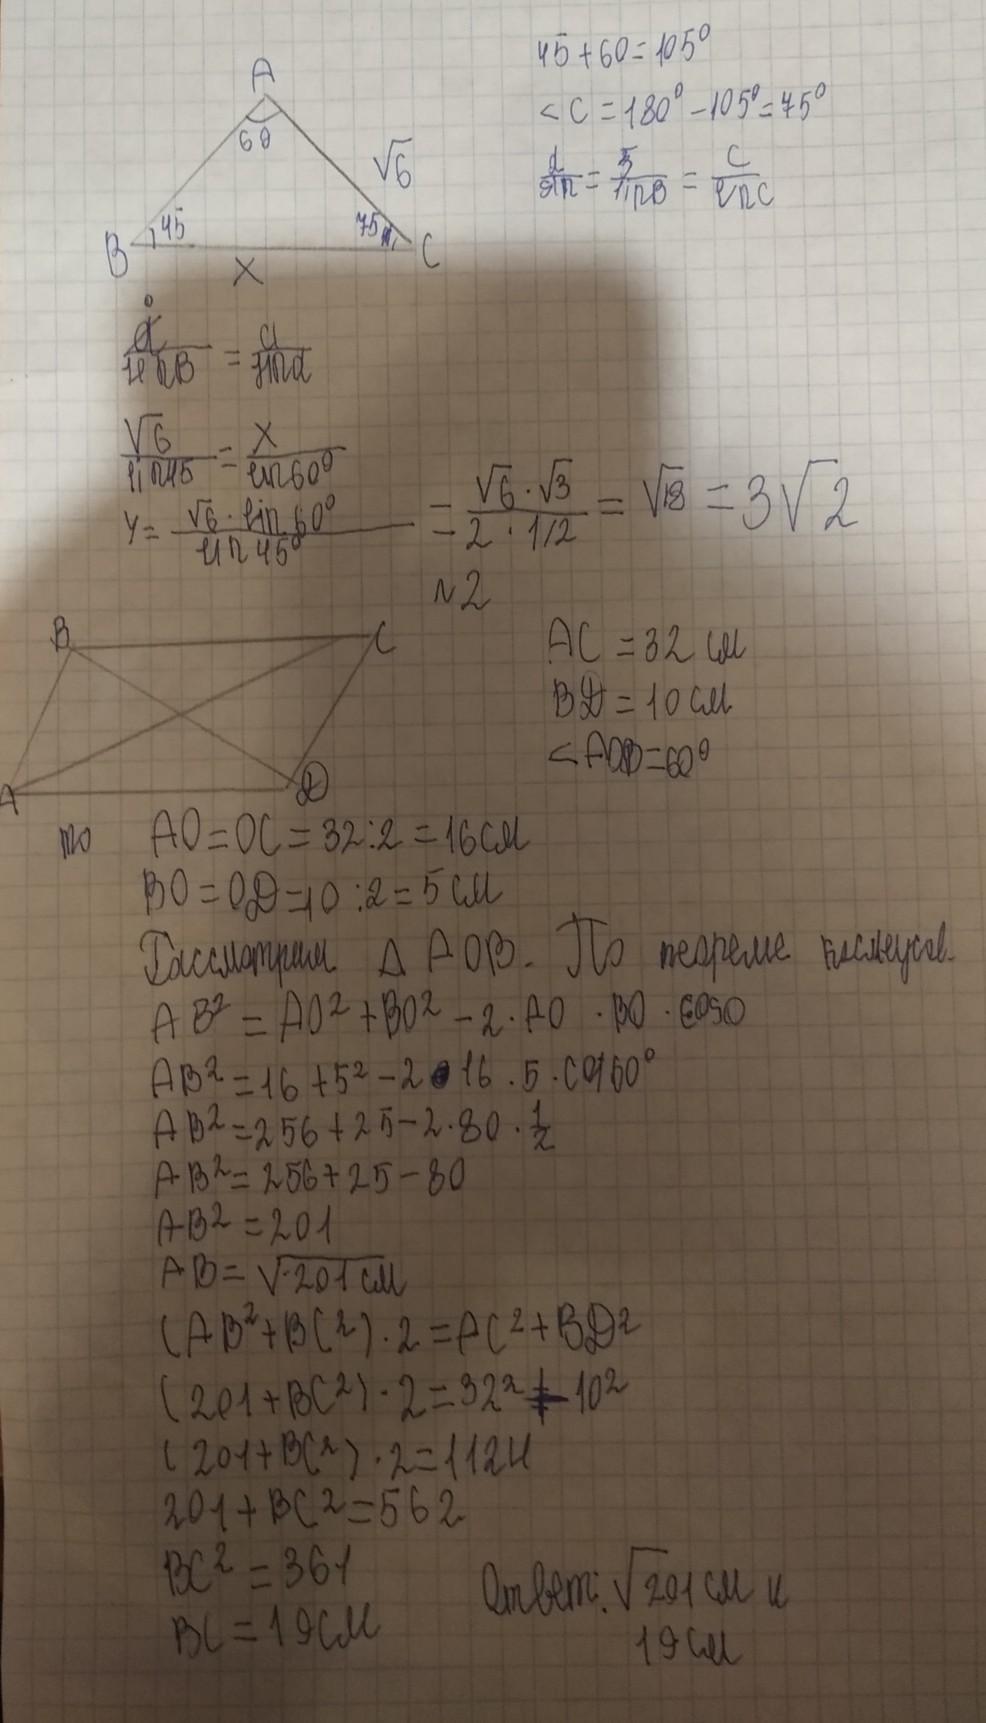 A
60
√6
B
45
75
C
X
45+60=105°
<C=180°-105°=75°
= 5/sinB = C/sinC
√6/sin45 = X/sin60°
Y= √6·sin60°/sin45° = √6·√3/2·1/2 = √18 = 3√2
N2
B
C
A
D
AC = 32 см
BD = 10 см
<AOB=60°
то AO=OC=32:2=16см
BO=OD=10:2=5см
Рассмотрим Δ AOB. По теореме косинусов.
AB²=AO²+BO²-2·AO·BO·cosO
AB²=16+5²-2·16·5·cos60°
AB²=256+25-2·80·1/2
AB²=256+25-80
AB²=201
AB=√201см
(AB²+BC²)·2=AC²+BD²
(201+BC²)·2=32²+10²
(201+BC²)·2=1124
201+BC²=562
BC²=361
BC=19см
Ответ: √201см и
19см